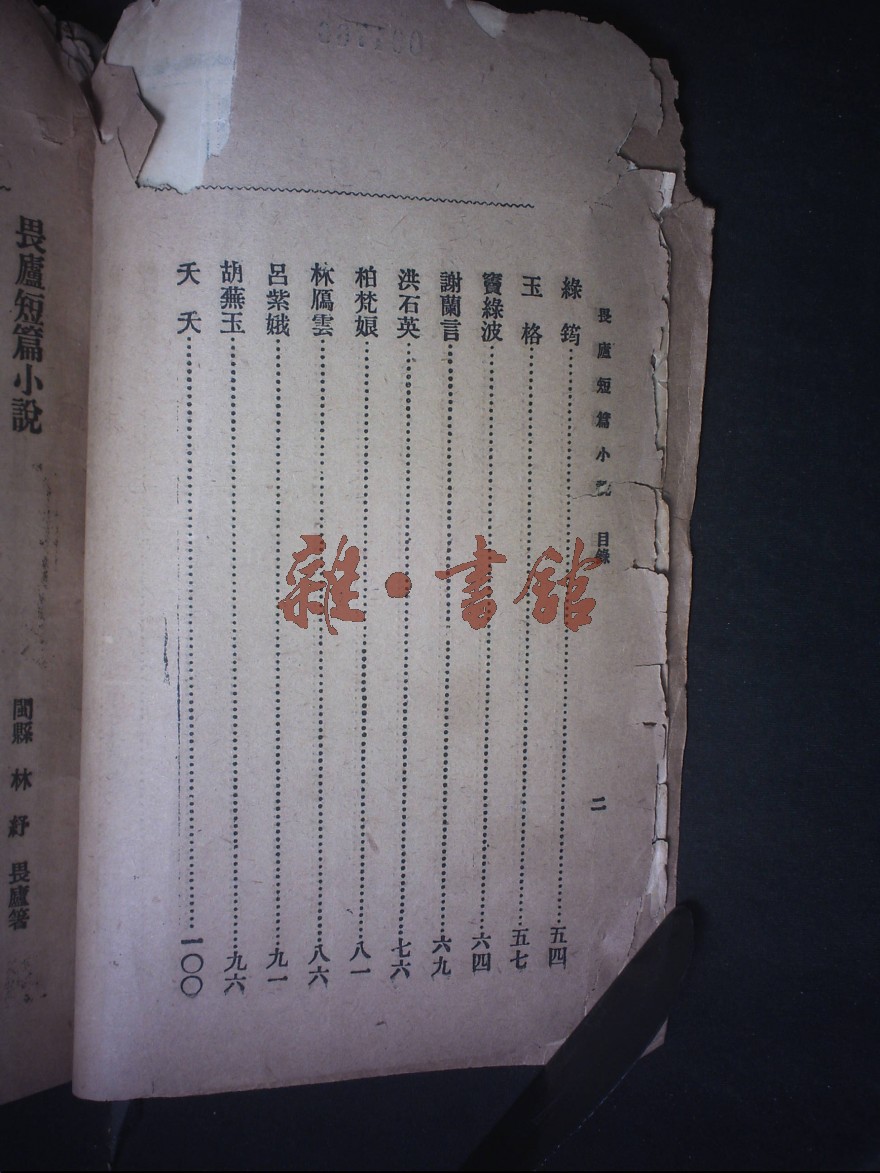 畏廬短篇小說 目錄 二
綠筠 五四
玉格 五七
竇綠波 六四
謝蘭言 六九
洪石英 七六
柏梵娘 八一
林鴈雲 八六
呂紫娥 九一
胡蕪玉 九六
夭夭 一〇〇
畏廬短篇小說
閩縣 林紓 畏廬著
雜·書館